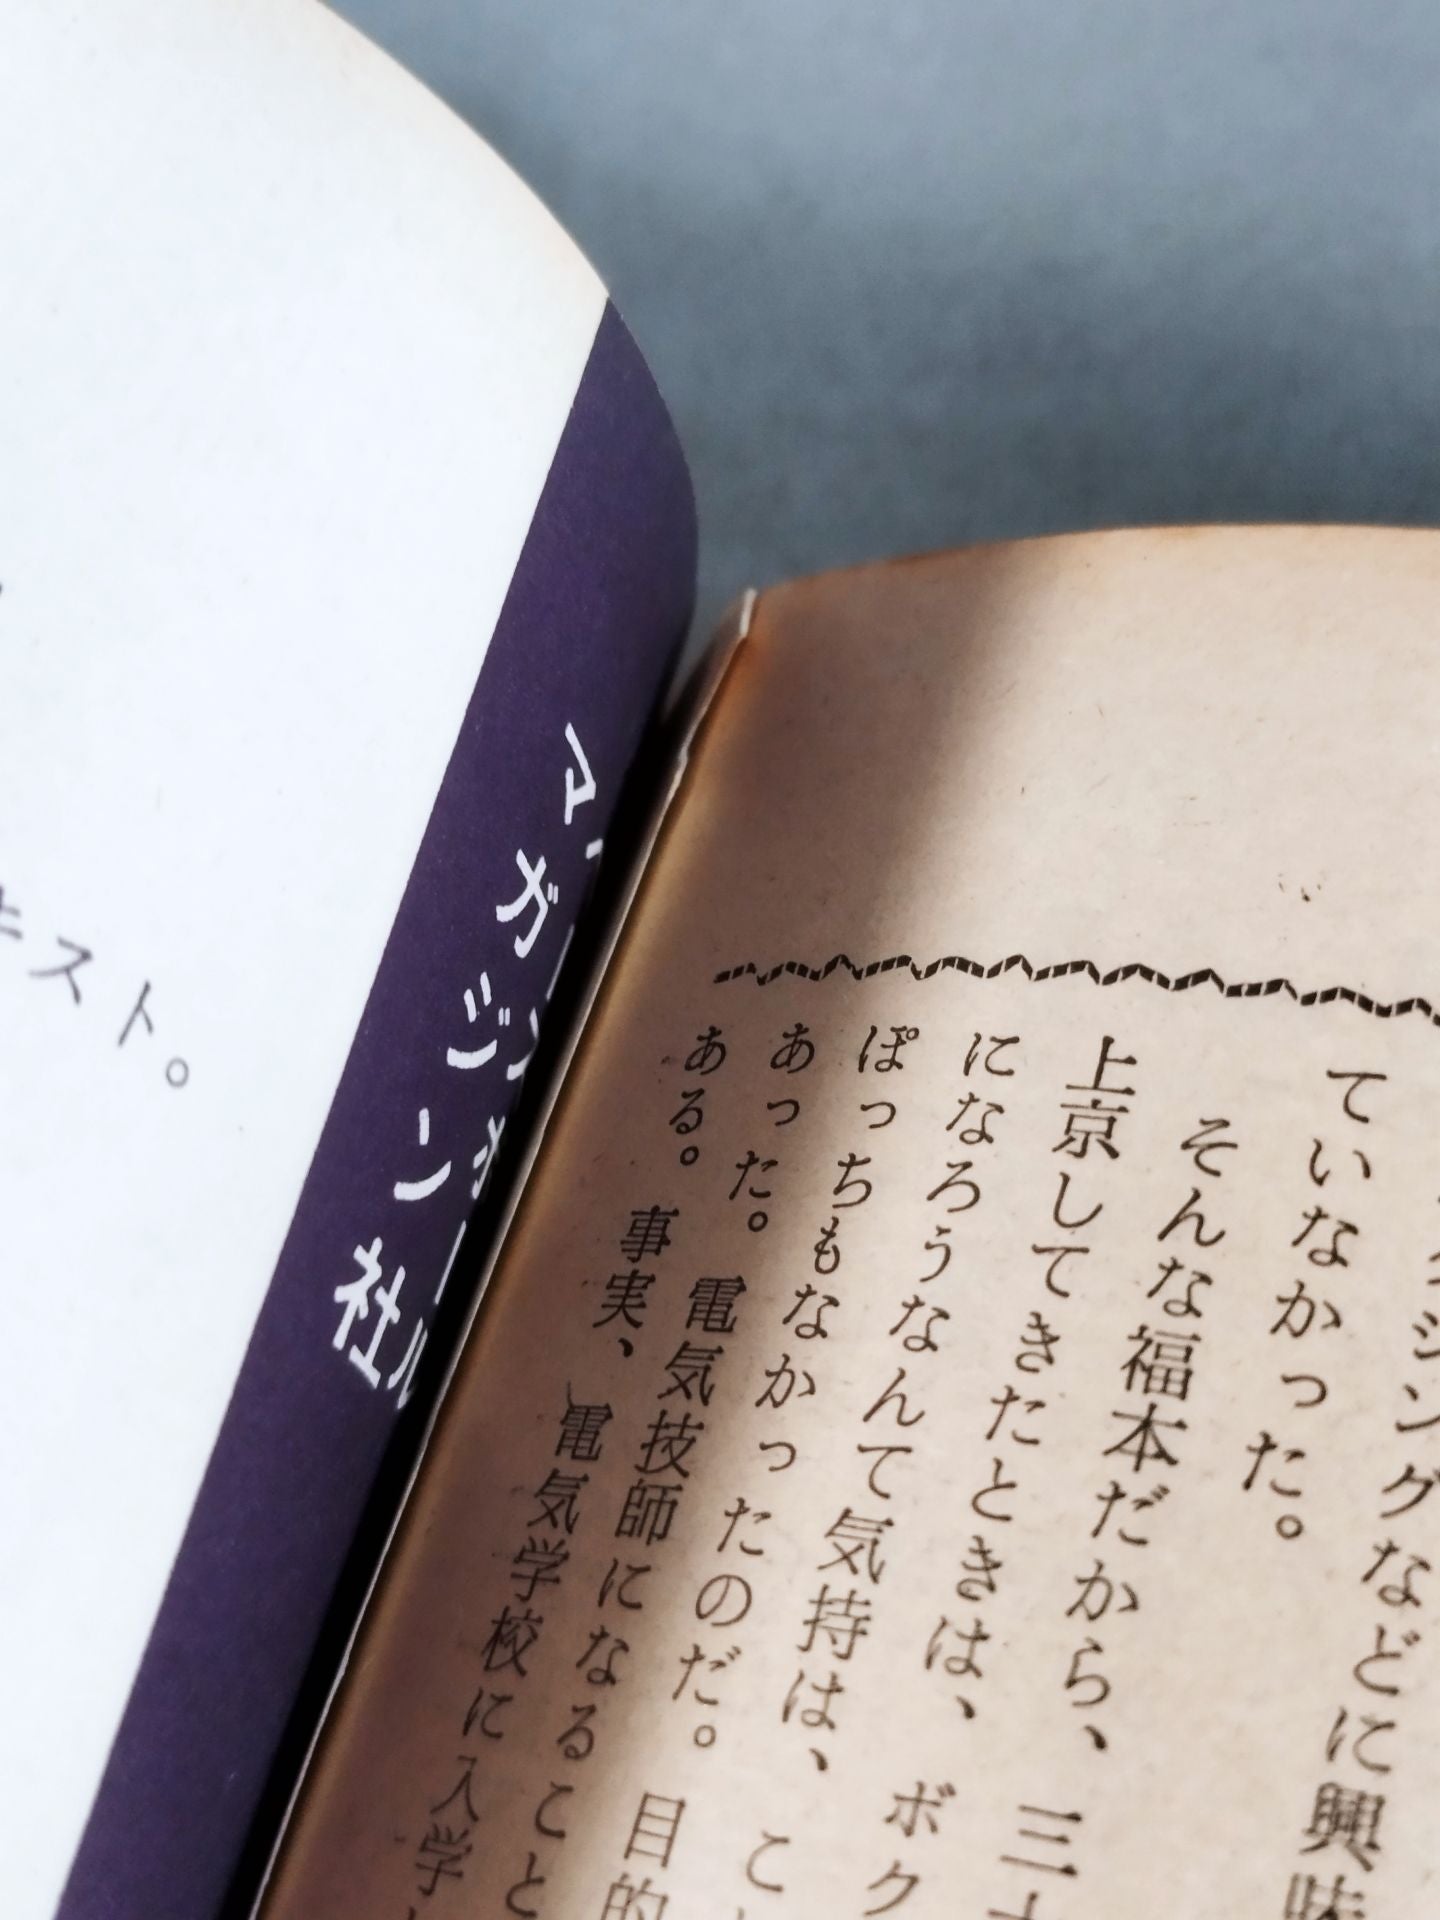 シングなどに興味
ていなかった。
そんな福本だから、三
上京してきたときは、ボク
になろうなんて気持は、こ
ぽっちもなかったのだ。目的
あった。電気技師になること
ある。事実、電気学校に入学
マガジン社
キスト。